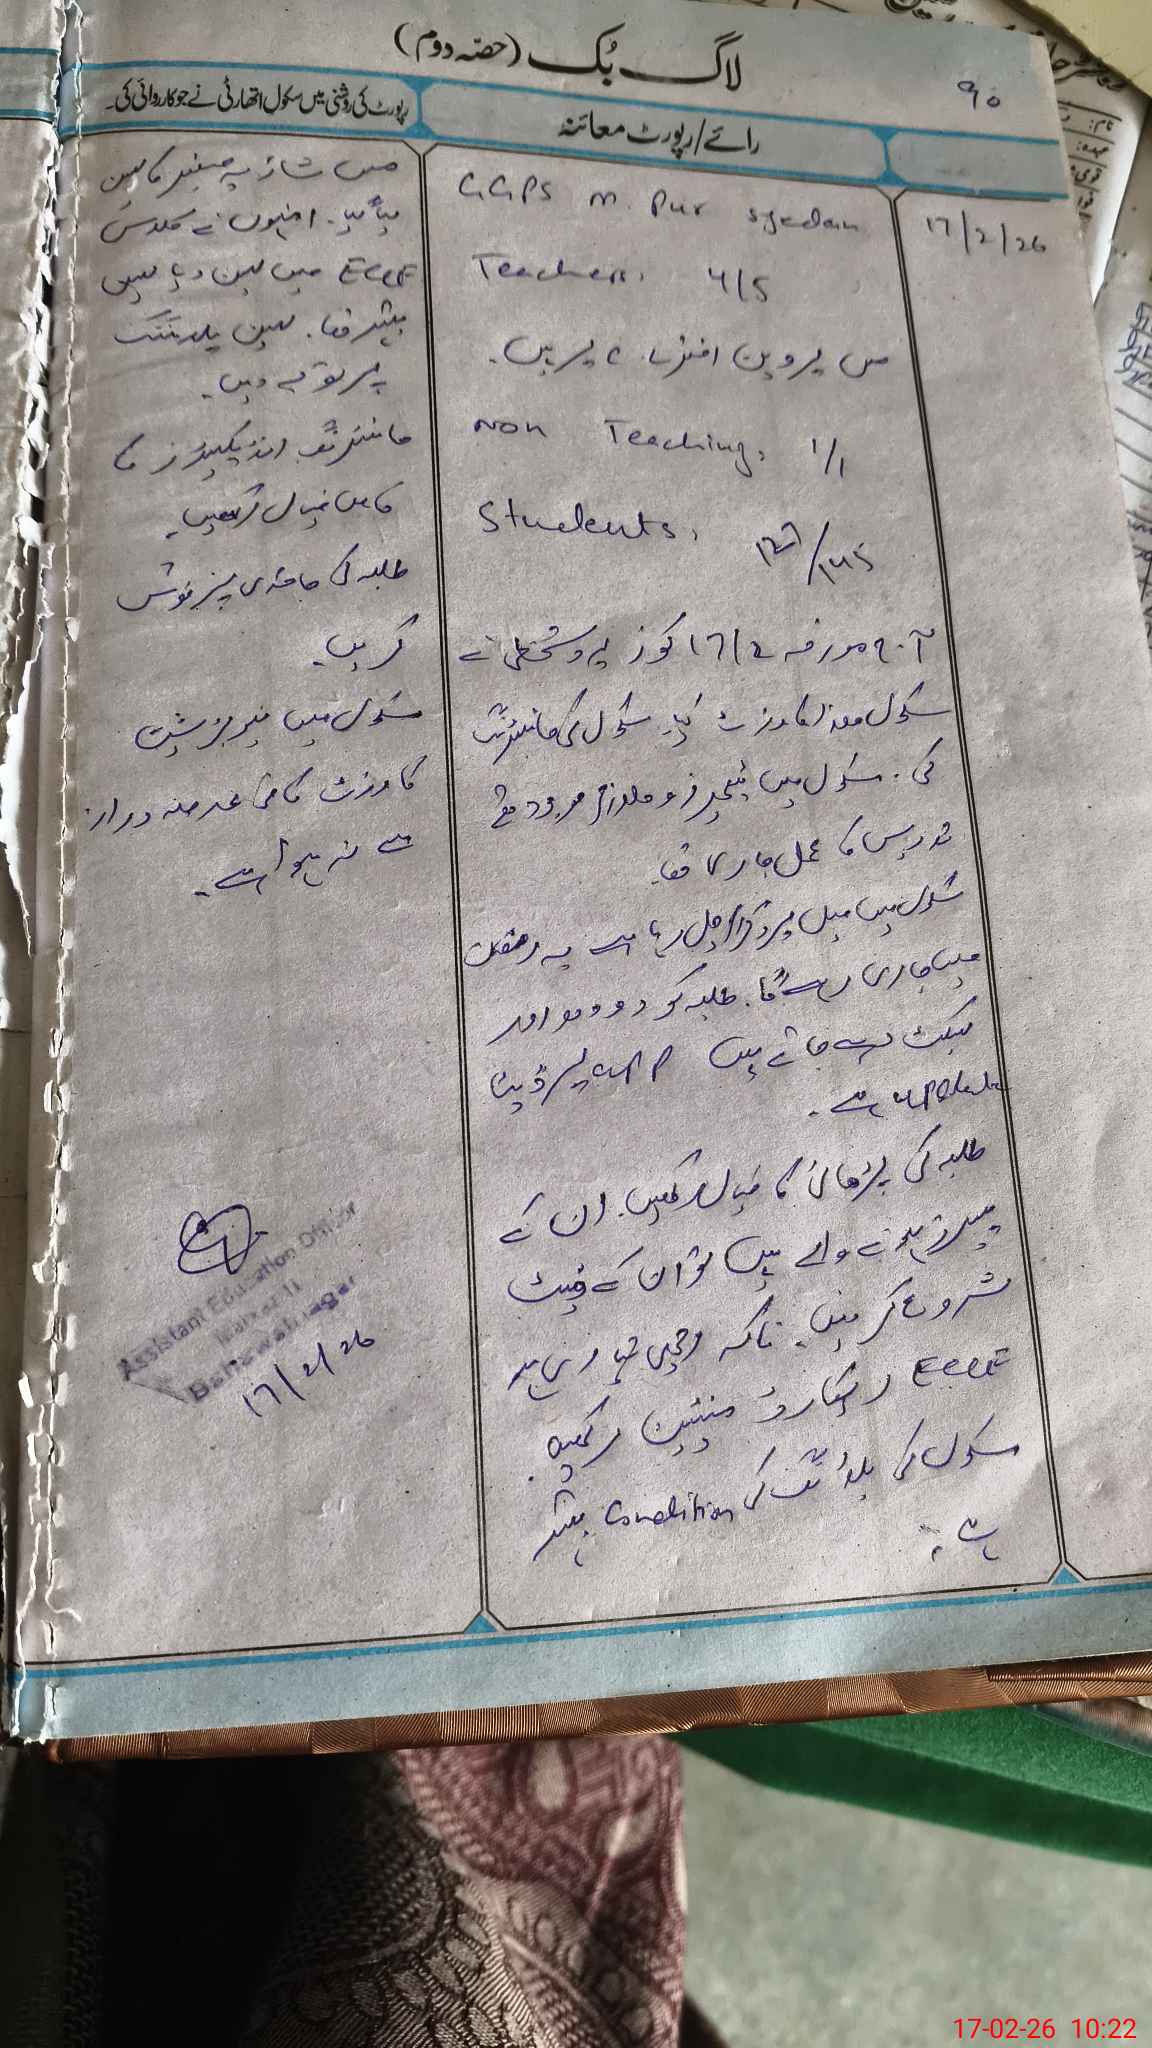 لاگ بُک (حصّہ دوم)
۹۰
رائے/رپورٹ معائنہ
رپورٹ کی روشنی میں سکول اتھارٹی نے جو کارروائی کی۔
17/2/26
GGPS M. Pur Syedan
Teachers: 4/5
مس پروین اختر لیو پر ہیں۔
Non Teaching: 1/1
Students: 127/145
آج مورخہ 17/2 کو زیر دستخطی نے
سکول ہذا کا وزٹ کیا۔ سکول کی مانیٹرنگ
کی۔ سکول میں ٹیچرز و ملازم موجود تھے
تدریس کا عمل جاری تھا۔
سکول میں میل پروگرام چل رہا ہے یہ رمضان
میں جاری رہے گا۔ طلبہ کو دودھ اور
بسکٹ دیے جاتے ہیں APP پر ڈیٹا
Update ہے۔
طلبہ کی پڑھائی کا خیال رکھیں۔ ان کے
پیپرز ہونے والے ہیں تو ان کے ٹیسٹ
شروع کر دیں۔ تاکہ اچھی تیاری ہو
ECCE ریکارڈ مینٹین رکھیں۔
سکول کی بلڈنگ کی Condition بہتر
ہے۔
مس شازیہ صفدر کا لیسن
لیا گیا۔ انہوں نے کلاس
ECCE میں لیسن دیا لیسن
بہتر تھا۔ لیسن پلاننگ
پر توجہ دیں۔
مانیٹرنگ انڈیکیٹرز کا
خاص خیال رکھیں۔
طلبہ کی حاضری پر فوکس
کریں۔
سکول میں
کا وزٹ کافی عرصہ دراز
سے نہ ہوا ہے۔
Assistant Education Officer
Markaz
Bahawalnagar
17/2/26
17-02-26 10:22